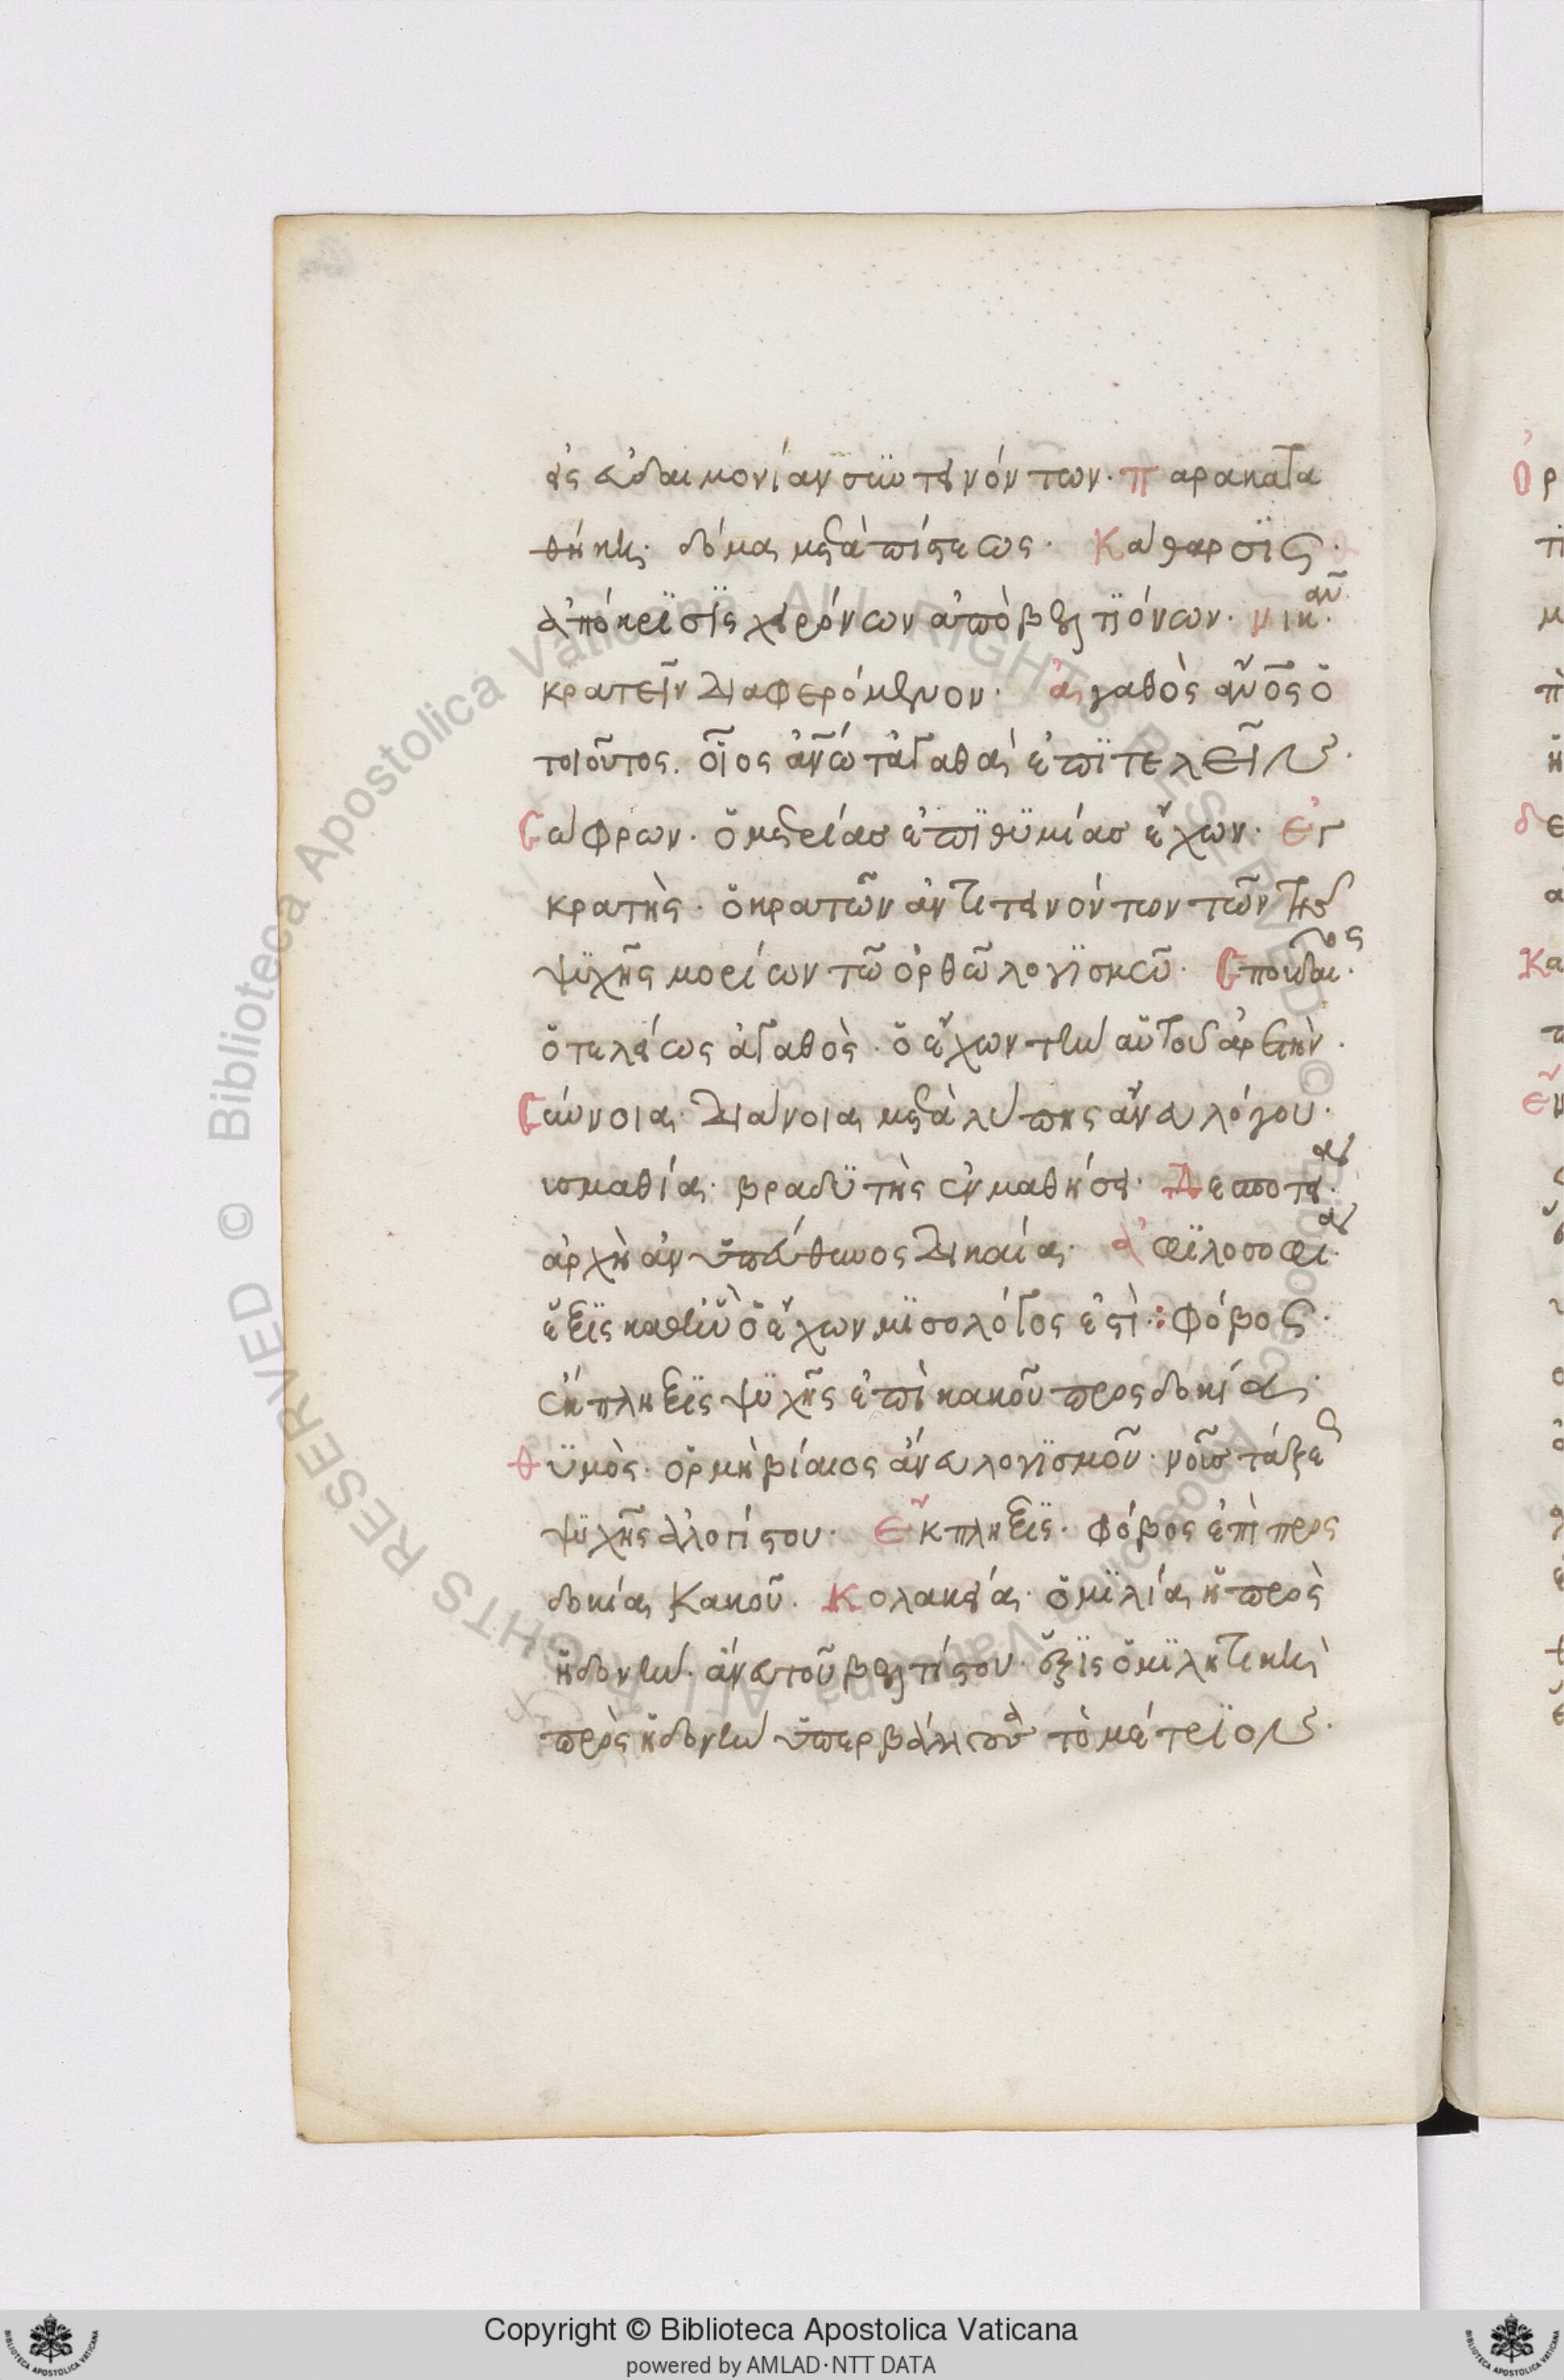 εἰς εὐδαιμονίαν συντεινόντων· Παρακατα
θήκη· δόμα μετὰ πίστεως· Κάθαρσϊς·
ἀπόκρϊσϊς χειρόνων ἀπὸ βελτϊόνων· νικᾶν·
κρατεῖν διαφερόμενον· ἀγαθὸς ἄνος ὁ
τοιοῦτος. οἷος ἀνω τἀγαθὰ ἐπϊτελεῖν·
Σώφρων· ὁ μετρίας ἐπϊθϋμίας ἔχων· Εγ
κρατὴς· ὁ κρατῶν ἀντιτεινόντων τῶν τῆς
ψϋχῆς μορίων τῶ ὀρθῶ λογϊσμῶ· Σπουδαιος·
ὁ τελείως ἀγαθὸς· ὁ ἔχων τὴν αὑτοῦ ἀρετὴν·
Σύννοια· διάνοια μετὰ λύπης ἄνευ λόγου·
υσμαθία· βραδϋτὴς ἐν μαθήσει· Δεσποτεια·
ἀρχὴ ἀνϋπεύθυνος δικαία· ἀφϊλοσοφια·
ἕξϊς καθ' ἣν ὁ ἔχων μϊσολόγος ἐστὶ·: Φόβος·
ἔκπληξϊς ψϋχῆς ἐπὶ κακοῦ προσδοκία·
Θϋμὸς· ὁρμὴ βίαιος ἄνευ λογϊσμοῦ· νοῦς τάξεως
ψϋχῆς ἀλογίστου· Ἔκπληξϊς· φόβος ἐπὶ προσ
δοκία κακοῦ· Κολακεία· ὁμϊλία ἡ πρὸς
ἡδονὴν· ἄνευ τοῦ βελτίστου· ἕξϊς ὁμϊλητικὴ
πρὸς ἡδονὴν ὑπερβάλλουσα τὸ μέτρϊον·
Copyright © Biblioteca Apostolica Vaticana
powered by AMLAD·NTT DATA